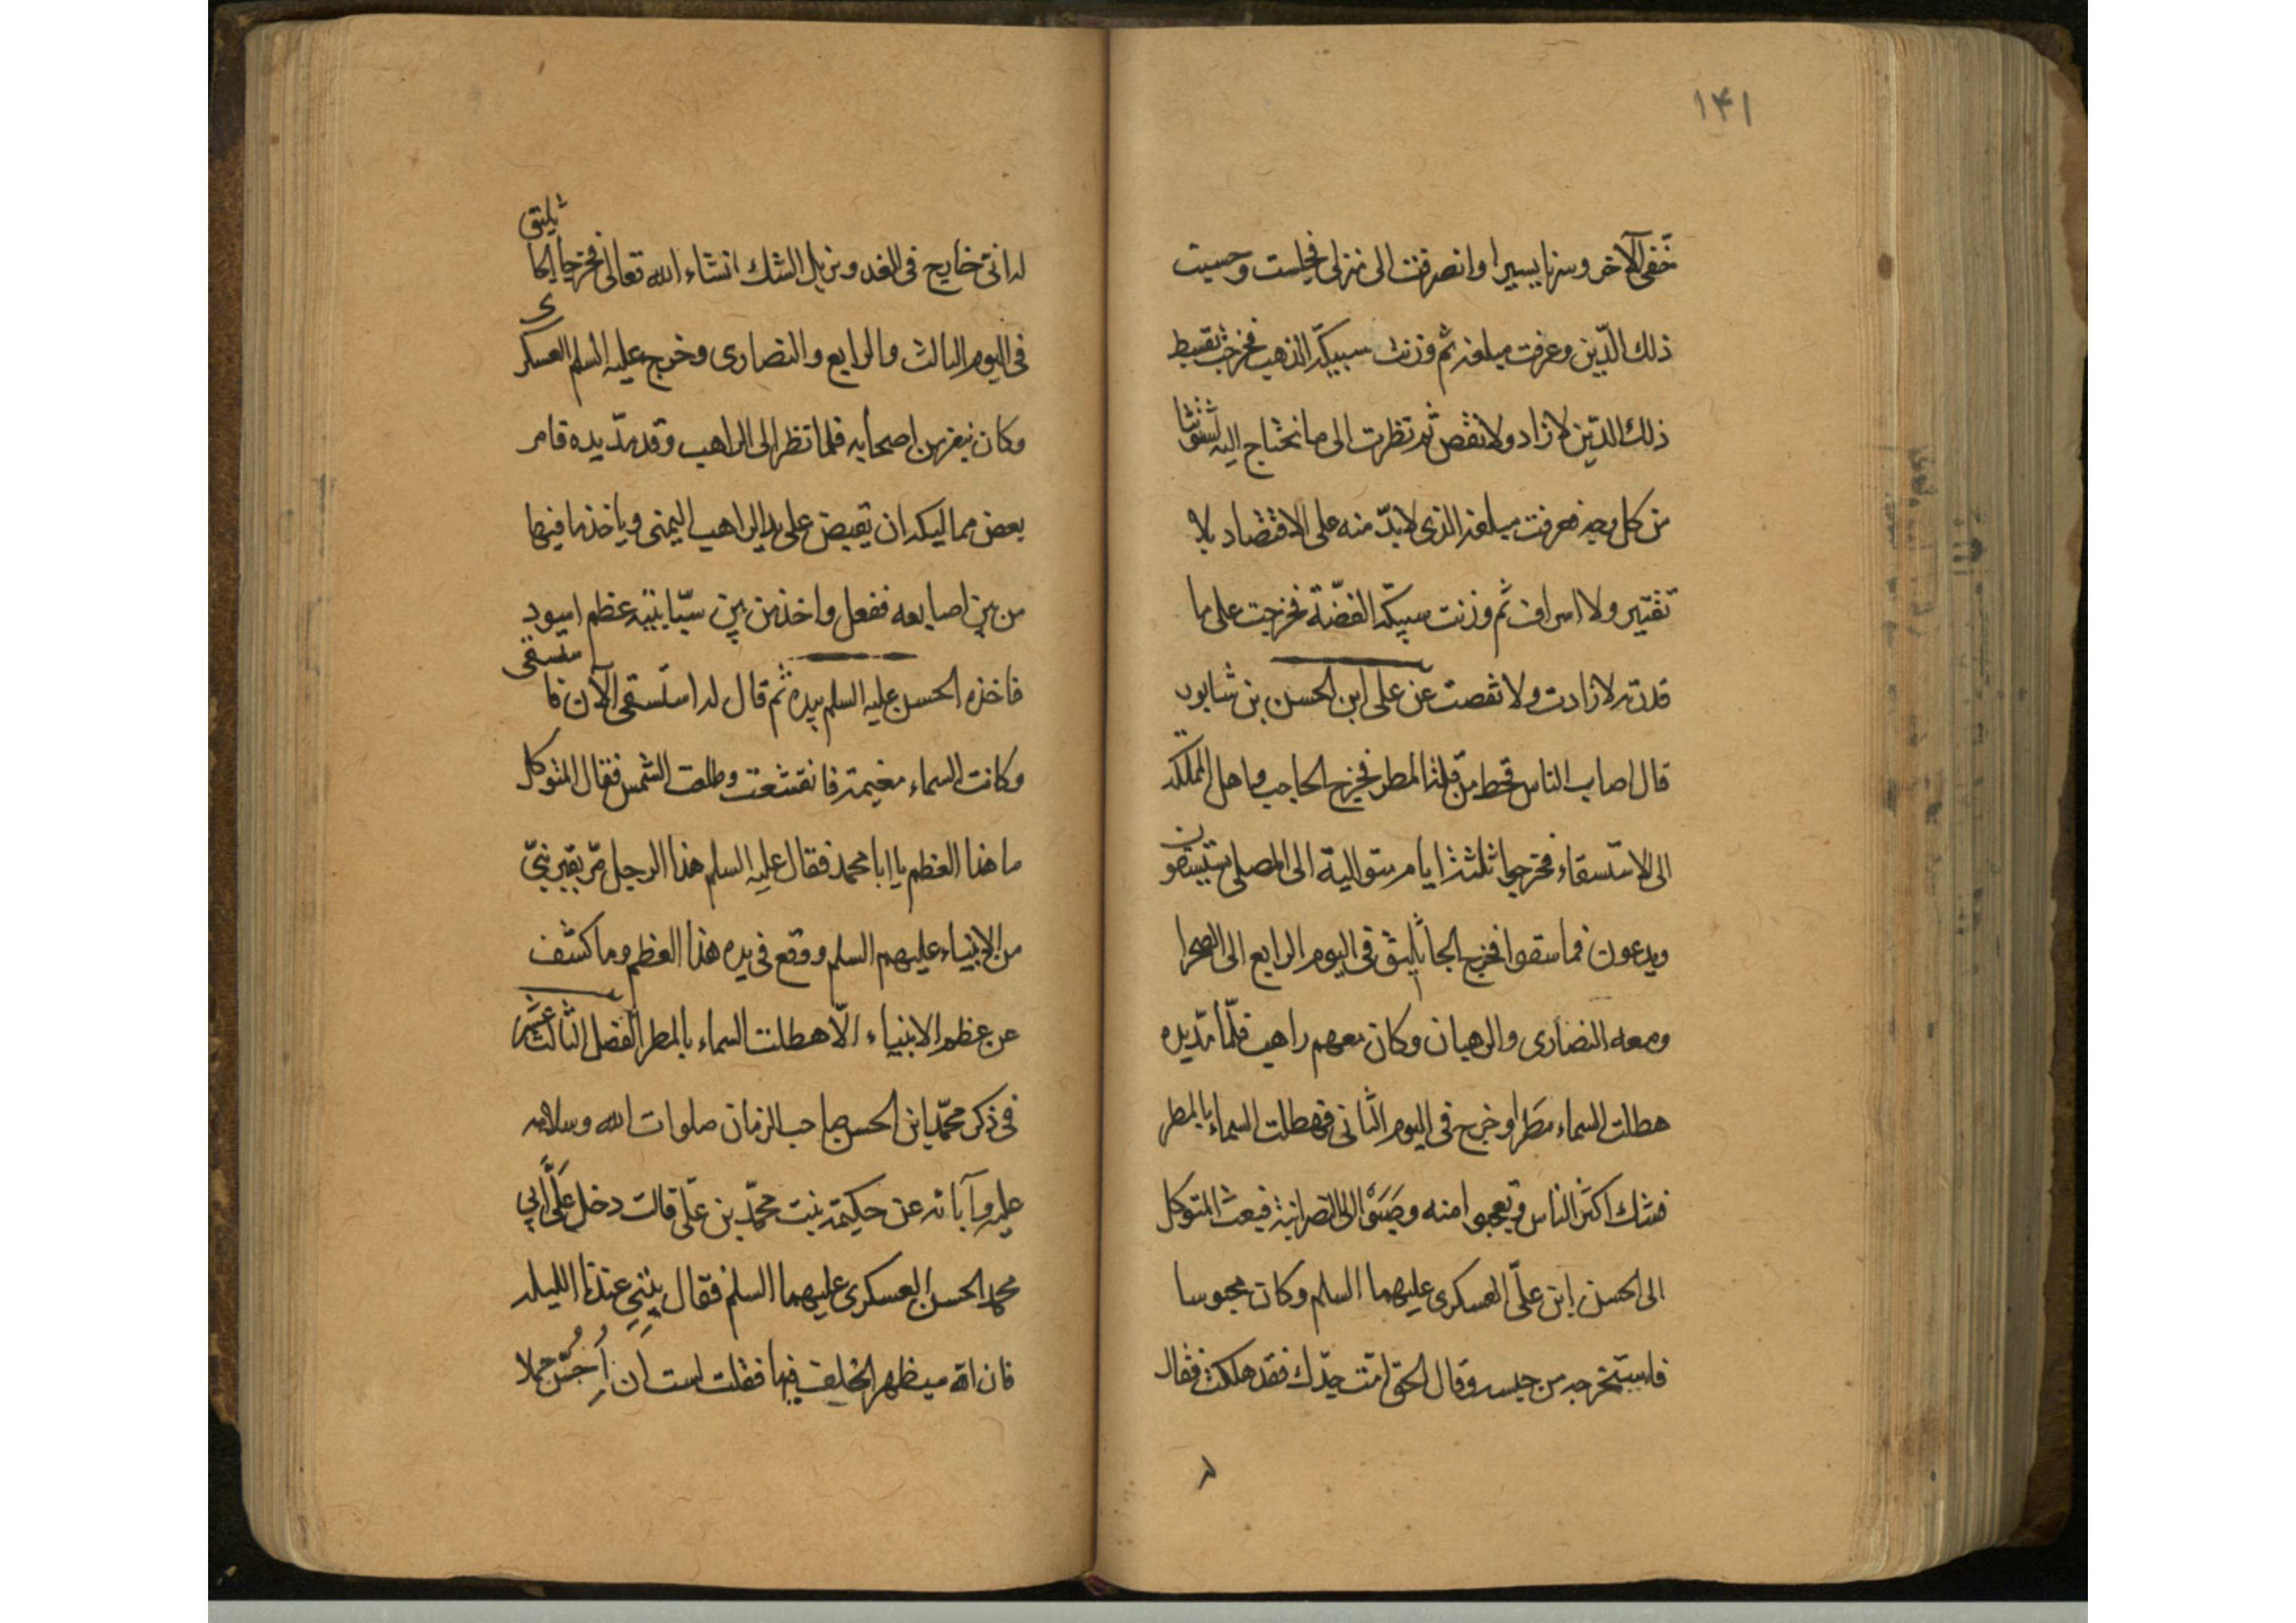 ۱۴۱
خفي الآخر وسرنا يسيرا وانصرفت الى منزلي فجلست وحسبت
ذلك الدّين وعرفت مبلغه ثم وزنت سبيكة الذهب فخرجت بقسط
ذلك الدّين لا زاد ولا نقص ثم نظرت الى ما نحتاج اليه لشتوتنا
من كل وجه فعرفت مبلغه الذى لا بدّ منه على الاقتصاد بلا
تقتير ولا اسراف ثم وزنت سبيكة الفضّة فخرجت على ما
قدرته لا زادت ولا نقصت عن على ابن الحسن بن شابور
قال اصاب الناس قحط من قلة المطر فخرج الحاجب واهل المملكة
الى الاستسقاء فخرجوا ثلثة ايام متوالية الى المصلى يستسقون
ويدعون فما سقوا فخرج الجاثليق في اليوم الرابع الى الصحرا
ومعه النصارى والرهبان وكان معهم راهب فلمّا مدّ يده
هطلت السماء مطرا وخرج في اليوم الثاني فهطلت السماء بالمطر
فشك اكثر الناس وتعجبوا منه وصَبَوْا الى النصرانية فبعث المتوكل
الى الحسن ابن علىّ العسكرى عليهما السلم وكان محبوسا
فاستخرجه من حبسه وقال الحق امّت جدّك فقد هلكت فقال
له
له انى خارج فى الغد ومزيل الشك انشاء الله تعالى فخرج الجاثليق
فى اليوم الثالث والرابع والنصارى وخرج عليه السلم العسكرى
وكان نفر من اصحابه فلما نظر الى الراهب وقد مدّ يده قامر
بعض مماليكه ان يقبض على يد الراهب اليمنى وياخذ ما فيها
من بين اصابعه ففعل واخذ من بين سبّابتيه عظم اسود
فاخذه الحسن عليه السلم بيده ثم قال له استسقى الآن فاستسقى
وكانت السماء مغيمة فانقشعت وطلعت الشمس فقال المتوكل
ما هذا العظم يا ابا محمد فقال عليه السلم هذا الرجل مرّ بقبر نبىّ
من الانبياء عليهم السلم ووقع فى يده هذا العظم وما كشف
عن عظم الانبياء الّا هطلت السماء بالمطر الفصل الثالث عشر
فى ذكر محمّد ابن الحسن صاحب الزمان صلوات الله وسلامه
عليه وآبائه عن حكيمة بنت محمّد بن علىّ قالت دخل عَلَىَّ ابى
محمد الحسن العسكرى عليهما السلم فقال بِيْتِى عندنا الليله
فان الله سيظهر الخلف فيها فقلت است ان حملا